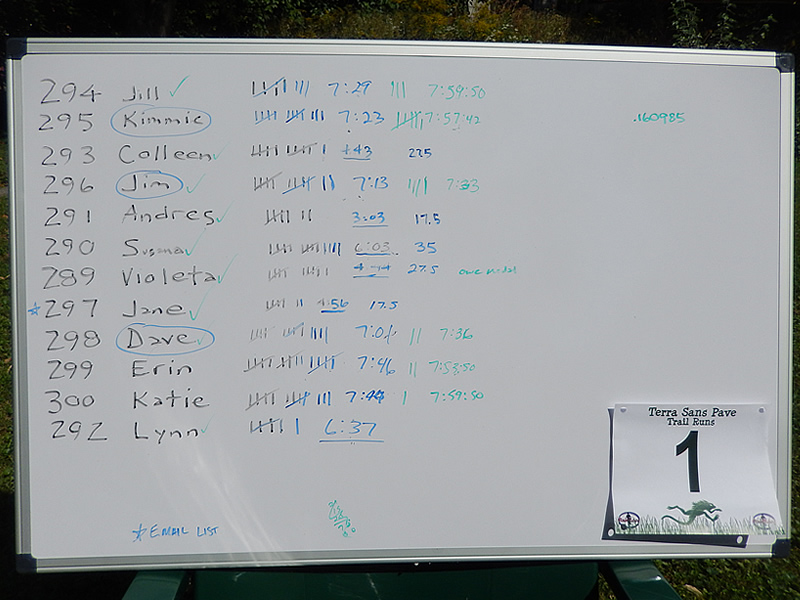 294 Jill ✓ 7:29 7:59:50
295 Kimmie 7:23 7:57:42 .160985
293 Colleen ✓
296 Jim ✓ 7:13
291 Andres ✓ 3:03 17.5
290 Susana ✓ 6:03 35
289 Violeta ✓ 27.5
*297 Jane ✓ 4:56 17.5
298 Dave ✓ 7:36
299 Erin 7:46 7:53:50
300 Katie 7:59:50
292 Lynn ✓ 6:37
*EMAIL LIST
Terra Sans Pave
Trail Runs
1